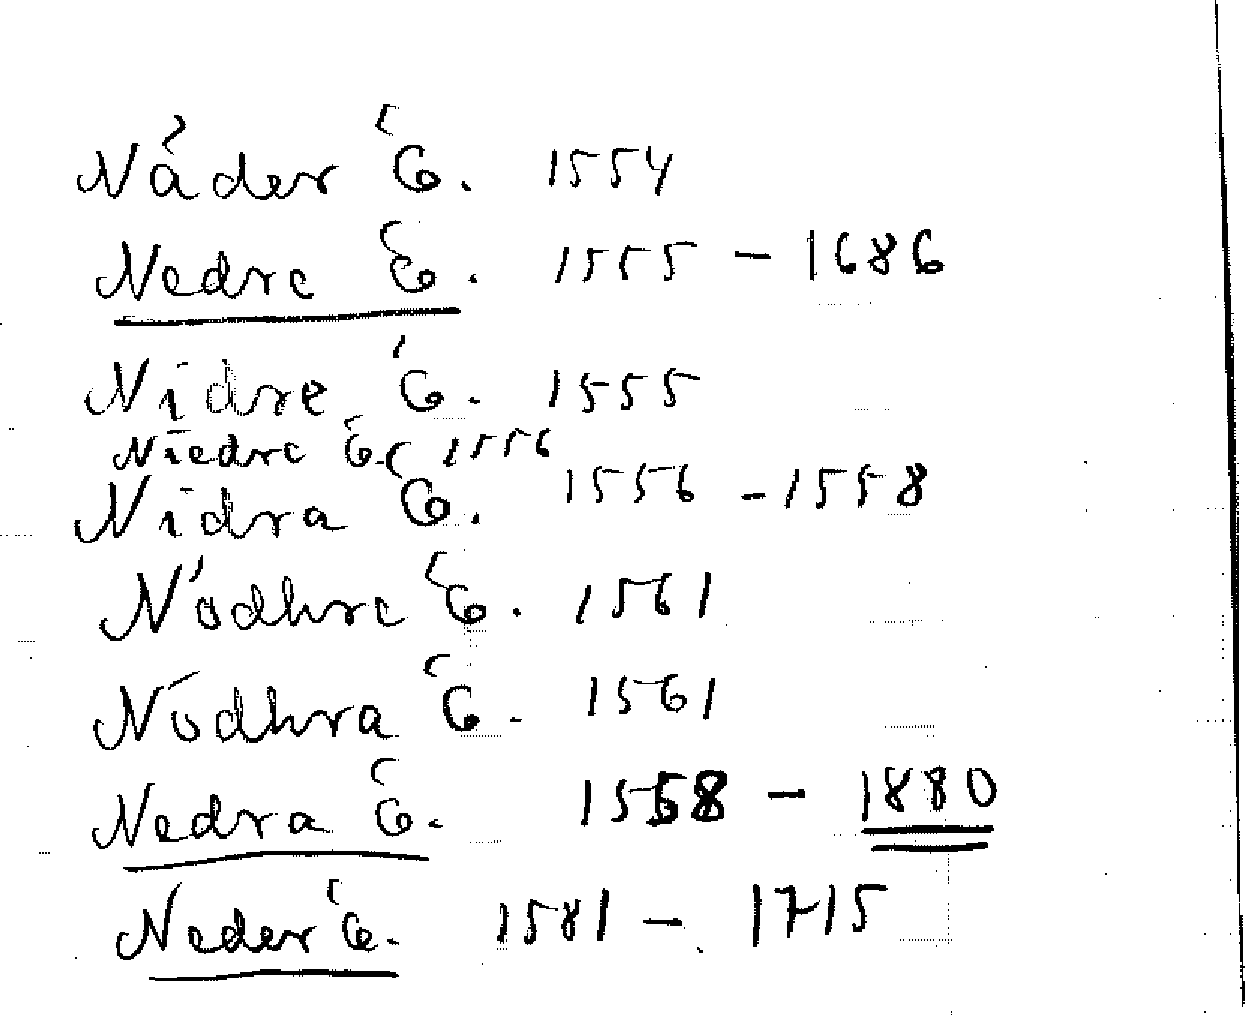 Nåder Ĕ. 1554
Nedre Ĕ. 1555 – 1686
Nidre Ĕ. 1555
Niedre Ĕ. 1556
Nidra Ĕ. 1556 – 1558
Nödhre Ĕ. 1561
Nödhra Ĕ. 1561
Nedra Ĕ. 1558 – 1880
Neder Ĕ. 1581 – 1715